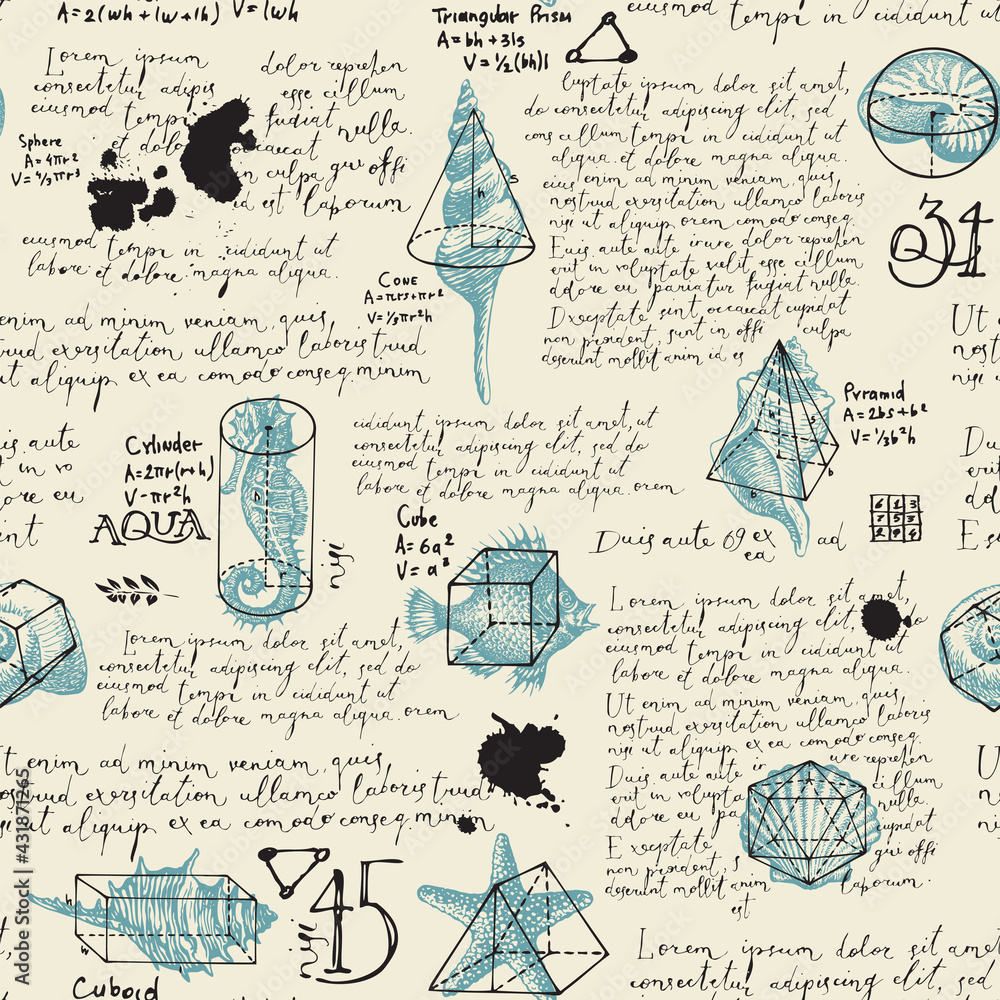 A=2(wh+lw+lh) V=lwh
Triangular Prism
A=bh+3ls
V=½(bh)l
eiusmod tempi in cididunt ut
labore et dolore magna aliqua.
Lorem ipsum
consectetur adipis
eiusmod tempi
et dolo
Sphere
A=4πr²
V=4/3πr³
dolor reprehen
esse cillum
fugiat nulla.
occaecat
in culpa qui offi
id est laborum
eiusmod tempi in cididunt ut
labore et dolore magna aliqua.
h
s
Cone
A=πrs+πr²
V=⅓πr²h
luptate ipsum dolor sit amet,
do consectetur adipiscing elit, sed
cons cillum tempi in cididunt ut
aliqua. et dolore magna aliqua.
eius enim ad minim veniam, quis
nostrud exersitation ullamco laboris
nisi ut aliquip ex ea comodo conseq.
Euis aute aute irure dolor reprehen
erit in voluptate velit esse cillum
dolore eu pariatur fugiat nulla.
Dxeptate sint, occaecat cupidat
non proident, sunt in offi culpa
deserunt mollit anim id es
34
enim ad minim veniam, quis
trud exersitation ullamco laboris trud
ut aliquip ex ea comodo conseq. minim
Ut
nost
nisi
is aute
t in vo
ore eu
int
Cylinder
A=2πr(r+h)
V-πr²h
AQUA
h
r
nisi
cididunt ut labore dolor sit amet,
consectetur adipiscing elit, sed do
eiusmod tempi in cididunt ut
labore et dolore magna aliqua. orem
Cube
A=6a²
V=a³
h
s
b
b
Pyramid
A=2bs+b²
V=⅓b²h
6 1 3
7 5 3
2 9 4
Duis aute 69 ex ad
ea
D
E s
Lorem ipsum dolor sit amet,
consectetur adipiscing elit, sed do
eiusmod tempi in cididunt ut
labore et dolore magna aliqua. orem
Lorem ipsum dolor sit amet,
consectetur adipiscing elit, do
eiusmod tempi in cididunt ut
labore et dolore magna aliqua.
Ut enim ad minim veniam, quis
nostrud exersitation ullamco laboris
nisi ut aliquip ex ea comodo conseq.
Duis aute aute ir ure reprehen
erit in volupta cillum
dolore eu pa nulla.
Exceptate cupidat
non proident, s qui offi
deserunt mollit anim laborum.
est
t enim ad minim veniam, quis
ostrud exersitation ullamco laboris trud
si ut aliquip ex ea comodo conseq. minim
l
w
h
Cuboid
nisi
45
Lorem ipsum dolor sit amet,
consectetur adipiscing elit, sed
Adobe Stock | #431871265
adobe stock